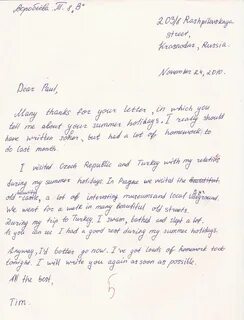 Воробьева Т. 8 "В"
203/1 Rashpilevskaya
street,
Krasnodar, Russia.
November 24, 2010.
Dear Paul,
Many thanks for your letter, in which you
tell me about your summer holidays. I really should
have written sooner, but had a lot of homework to
do last month.
I visited Czech Republic and Turkey with my relatives
during my summer holidays. In Prague we visited the
old castle, a lot of interesting museums and local
We went for a walk in many beautiful old streets.
During my trip to Turkey, I swam, bathed and slept a lot.
As you can see I had a good rest during my summer holidays.
Anyway, I'd better go now. I've got loads of homework
tonight. I will write you again as soon as possible.
All the best,
Tim.
5